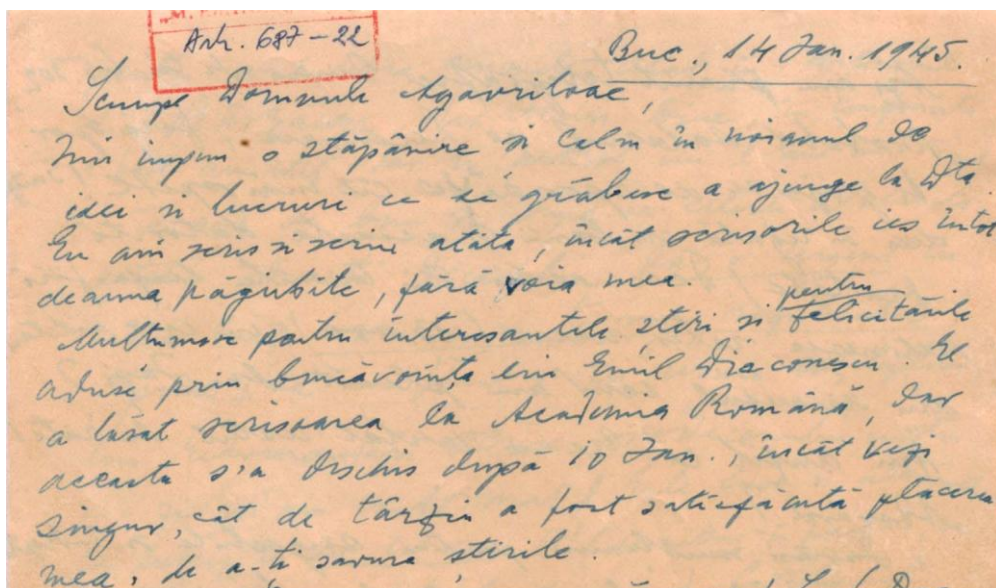 Arh. 687-22
Buc., 14 Jan. 1945.
Scumpe Domnule Agavriloae,
Îmi impun o stăpânire și calm în noianul de
idei și lucruri ce se grăbesc a ajunge la Dta.
Eu am scris și scriu atâta, încât scrisorile ies întot
deauna păgubite, fără voia mea.
pentru
Mulțumesc pentru interesantele știri și felicitările
aduse prin bunăvoința lui Emil Diaconescu. El
a lăsat scrisoarea la Academia Română, dar
aceasta s'a deschis după 10 Jan., încât vezi
singur, cât de târziu a fost satisfăcută plăcerea
mea, de a-ți savura știrile.